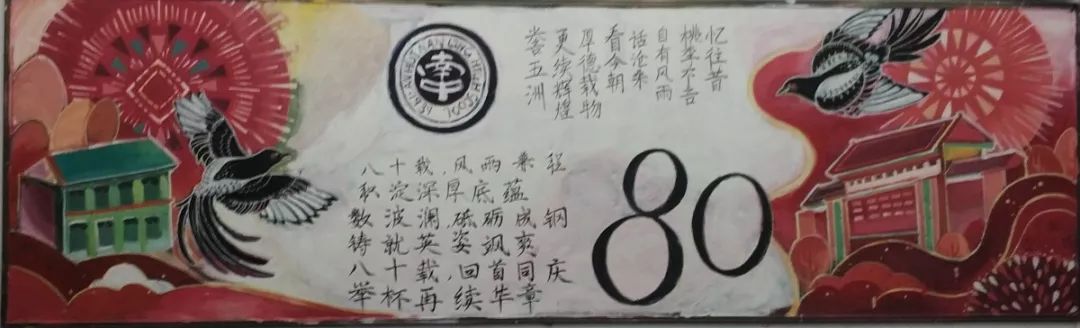 忆往昔
桃李不言
自有风雨
话沧桑
看今朝
厚德载物
更续辉煌
誉五洲
八十载,风雨兼程
积淀深厚底蕴
数波澜砥砺成钢
铸就英姿飒爽
八十载,回首同庆
举杯再续华章
80